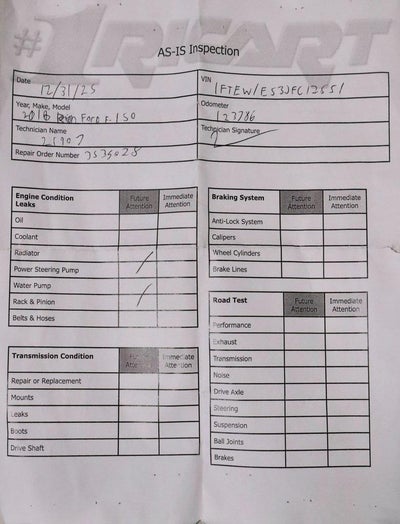 #1 RICART
AS-IS Inspection
Date 12/31/25
VIN 1FTEW1E53JFC12551
Year, Make, Model 2018 Ford F-150
Odometer 123786
Technician Name 25907
Technician Signature
Repair Order Number 7535028
Engine Condition Future Attention Immediate Attention
Leaks
Oil
Coolant
Radiator
Power Steering Pump /
Water Pump
Rack & Pinion /
Belts & Hoses
Transmission Condition Future Attention Immediate Attention
Repair or Replacement
Mounts
Leaks
Boots
Drive Shaft
Braking System Future Attention Immediate Attention
Anti-Lock System
Calipers
Wheel Cylinders
Brake Lines
Road Test Future Attention Immediate Attention
Performance
Exhaust
Transmission
Noise
Drive Axle
Steering
Suspension
Ball Joints
Brakes